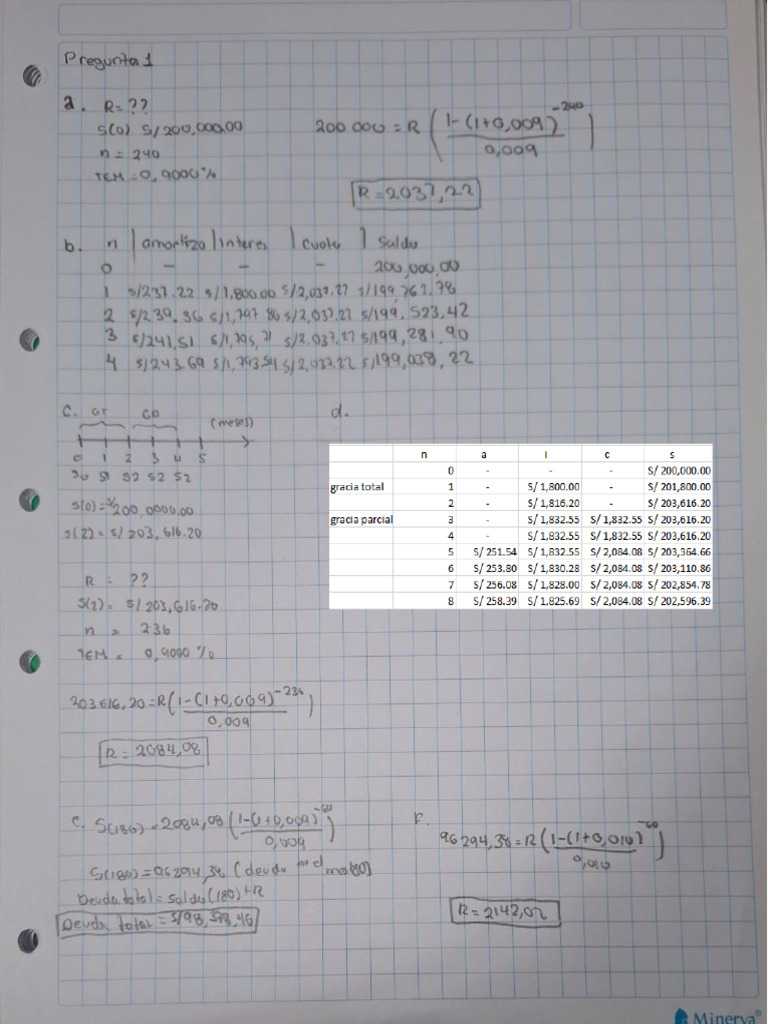 Pregunta 1
a. R = ??
S(0) S/200,000.00
n = 240
TEM = 0,9000%
200 000 = R ( 1-(1+0,009)^-240 / 0,009 )
R = 2037,22
b. n | amortiza | interes | cuota | Saldo
0 - - - 200,000.00
1 S/237.22 S/1,800.00 S/2,037.22 S/199,762.78
2 S/239.36 S/1,797.86 S/2,037.22 S/199,523.42
3 S/241,51 S/1,795,71 S/2.037,22 S/199,281,90
4 S/243.69 S/1,793.54 S/2,037.22 S/199,038,22
c. GT GP (meses)
0 1 2 3 4 5
S0 S1 S2 S2 S2
S(0) = S/200,0000.00
S(2) = S/203,616.20
R = ??
S(2) = S/203,616.20
n = 236
TEM = 0,9000%
203616,20 = R ( 1-(1+0,009)^-236 / 0,009 )
R = 2084,08
d.
n a I c s
0 - - - S/ 200,000.00
gracia total 1 - S/ 1,800.00 - S/ 201,800.00
2 - S/ 1,816.20 - S/ 203,616.20
gracia parcial 3 - S/ 1,832.55 S/ 1,832.55 S/ 203,616.20
4 - S/ 1,832.55 S/ 1,832.55 S/ 203,616.20
5 S/ 251.54 S/ 1,832.55 S/ 2,084.08 S/ 203,364.66
6 S/ 253.80 S/ 1,830.28 S/ 2,084.08 S/ 203,110.86
7 S/ 256.08 S/ 1,828.00 S/ 2,084.08 S/ 202,854.78
8 S/ 258.39 S/ 1,825.69 S/ 2,084.08 S/ 202,596.39
e. S(180) = 2084,08 ( 1-(1+0,009)^-60 / 0,009 )
S(180) = 96294,38 (deuda en el mes 180)
Deuda total = saldo (180) + R
Deuda total = S/98,378,46
F.
96294,38 = R ( 1-(1+0,010)^-60 / 0,010 )
R = 2142,02
Minerva®